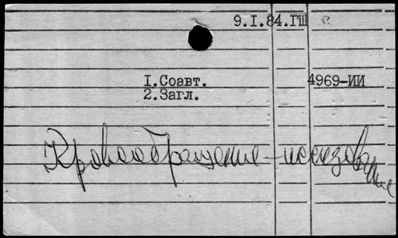 9.I.84.ГШ
I.Соавт. 4969-ИИ
2.Загл.
Кровообращение - исследование